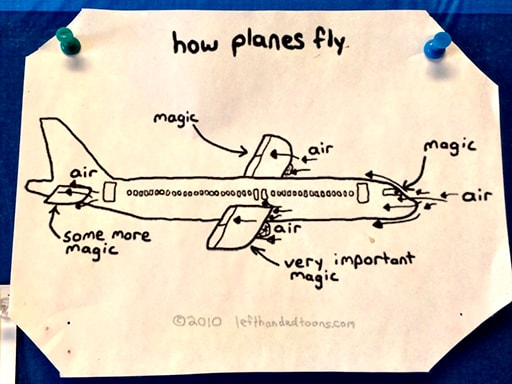 how planes fly
magic
air
magic
air
air
some more
magic
air
very important
magic
©2010 lefthandedtoons.com